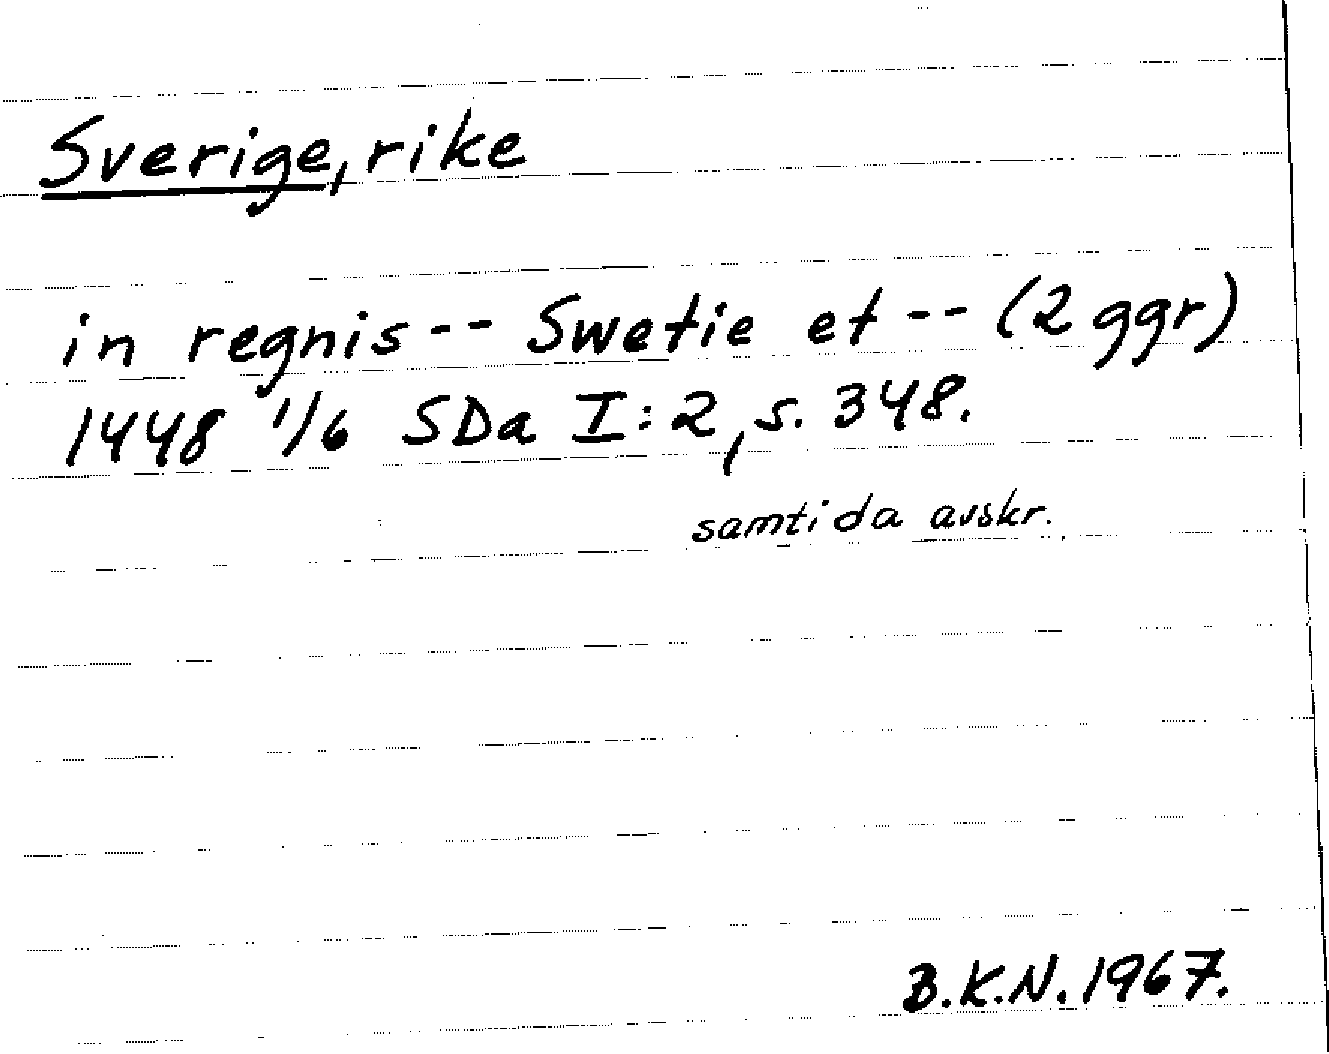 Sverige, rike
in regnis -- Swetie et -- (2 ggr)
1448 1/6 SDa I:2, s. 348.
samtida avskr.
B.K.N. 1967.